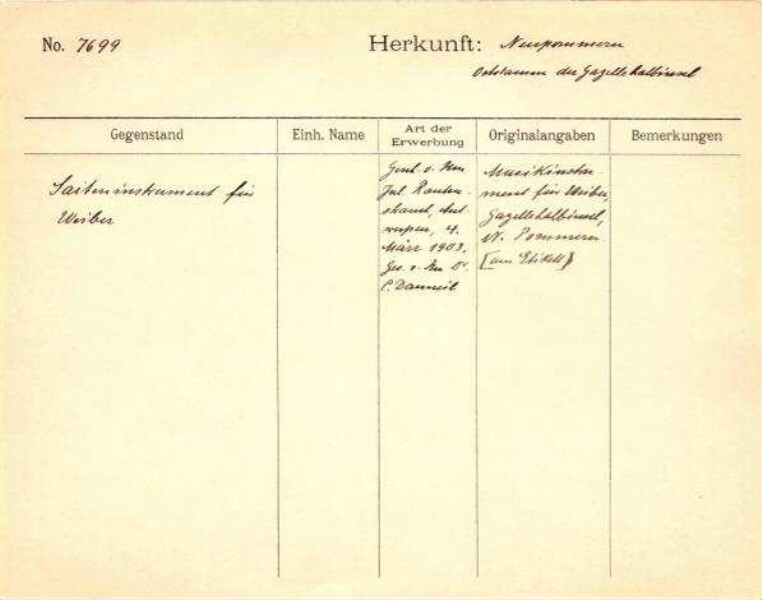 No. 7699
Herkunft: Neupommern
Oststamm der Gazellehalbinsel
Gegenstand
Einh. Name
Art der Erwerbung
Originalangaben
Bemerkungen
Saiteninstrument für
Weiber
Gesch. v. Hrn
Jul. Rauten-
strauch, Ant-
werpen, 4.
März 1903.
Ges. v. Hrn Dr.
C. Danneil
Musikinstru-
ment für Weiber,
Gazellehalbinsel,
N. Pommern.